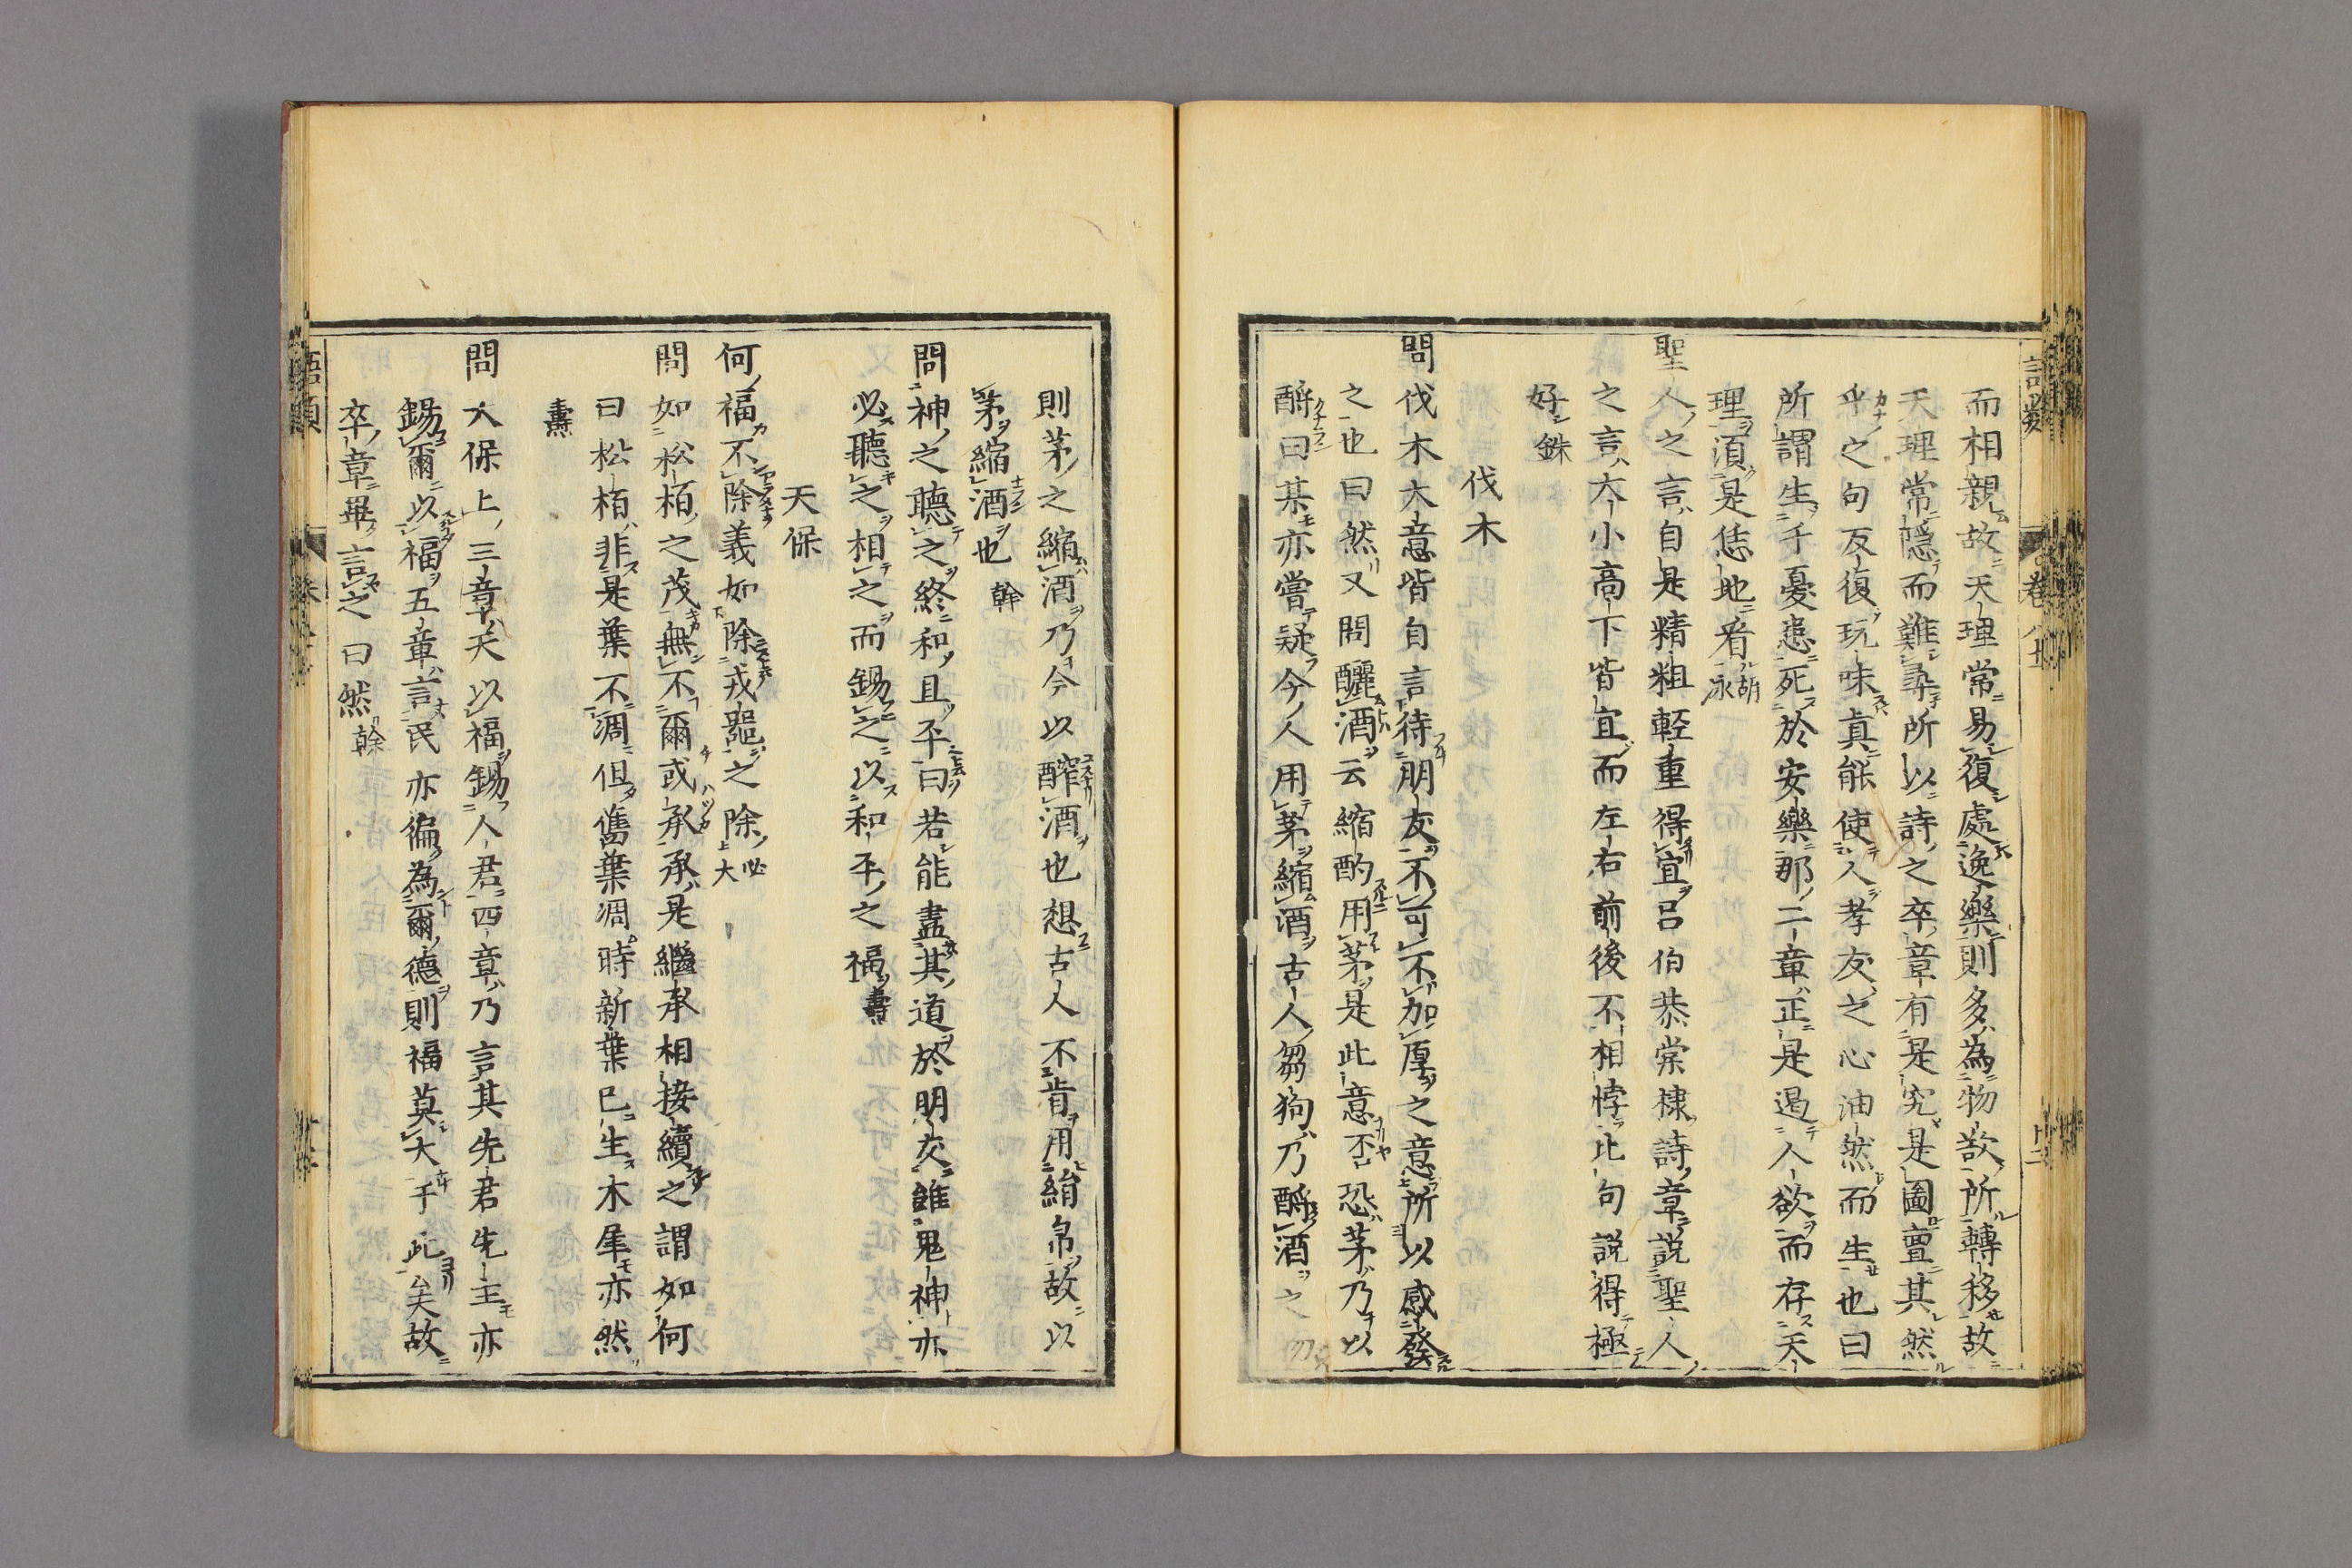 而相親故天理常易復處逸樂則多為物欲所轉移故
天理常隱而難尋所以詩之卒章有是究是圖亶其然
乎之句反復玩味真能使人孝友之心油然而生也曰
所謂生于憂患死於安樂那二章正是遏人欲而存天
理湏是恁地看胡泳
聖人之言自是精粗輕重得宜呂伯恭棠棣詩章說聖人
之言大小高下皆宜而左右前後不相悖此句說得極
好銖
伐木
問伐木大意皆自言待朋友不可不加厚之意所以感發
之也曰然又問釃酒云縮酌用茅是此意否恐茅乃以
酹曰某亦嘗疑今人用茅縮酒古人芻狗乃酹酒之物
則茅之縮酒乃今以醡酒也想古人不肯用絹帛故以
茅縮酒也 幹
問神之聽之終和且平曰若能盡其道於朋友雖鬼神亦
必聽之相之而錫之以和平之福燾
天保
何福不除義如除戎噐之除必大
問如松柏之茂無不爾或承承是繼承相接續之謂如何
曰松柏非是葉不凋但舊葉凋時新葉已生木犀亦然
燾
問天保上三章天以福錫人君四章乃言其先君先王亦
錫爾以福五章言民亦徧為爾德則福莫大于此矣故
卒章畢言之曰然 榦